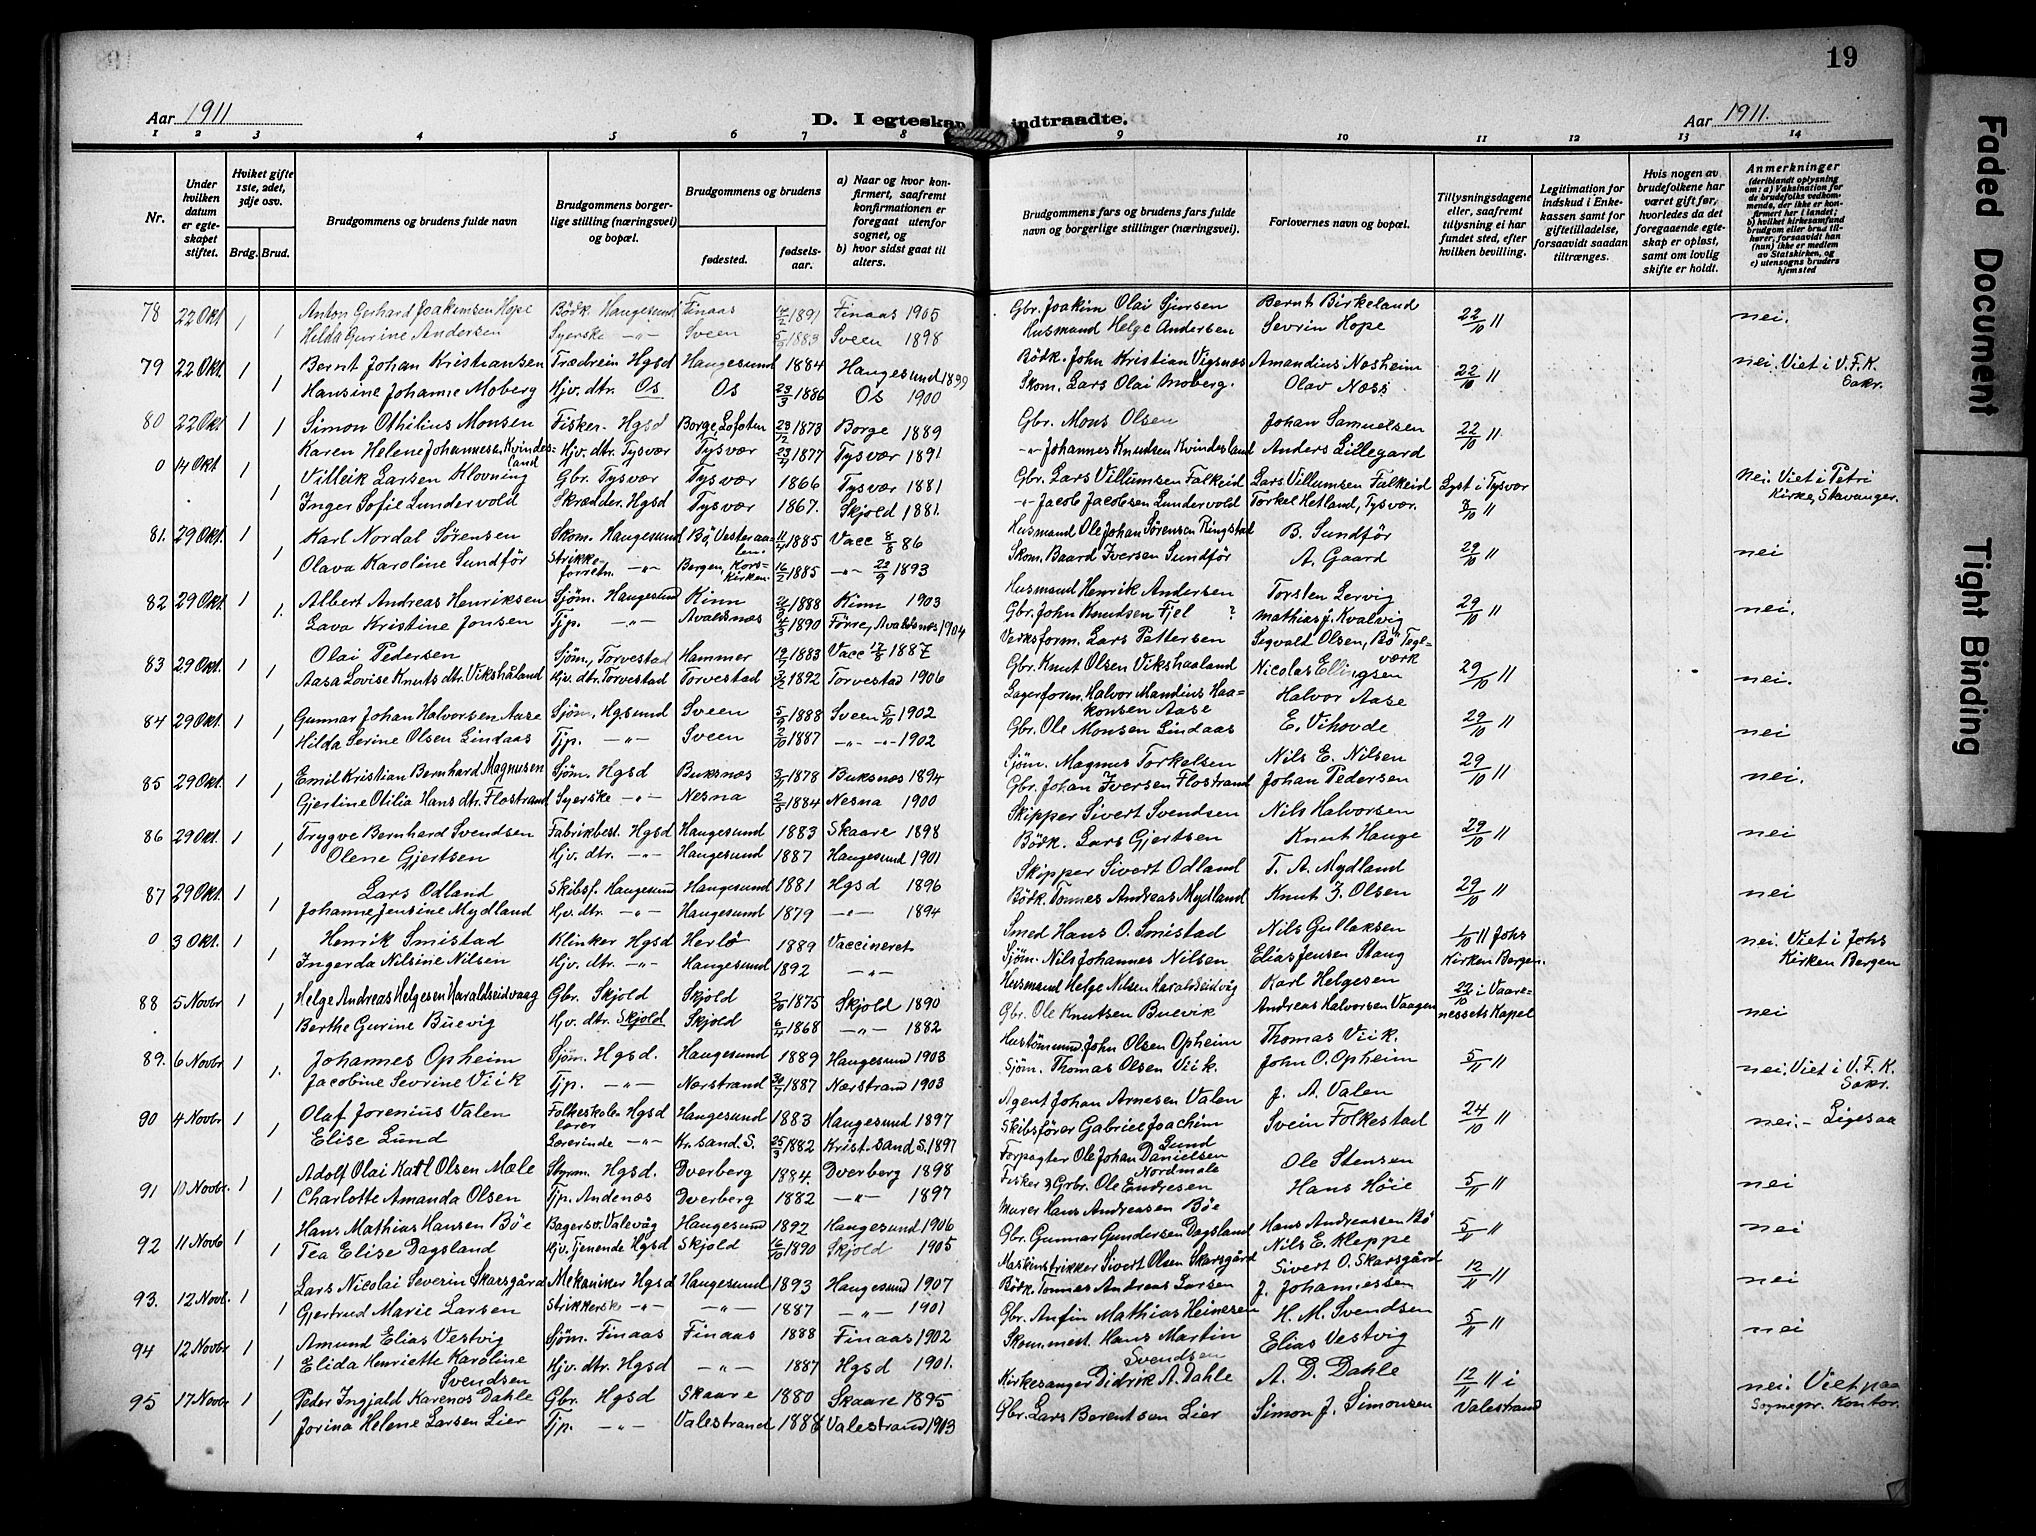 19
Aar 1911 D. I egteskap indtraadte. Aar 1911.
1 2 3 4 5 6 7 8 9 10 11 12 13 14
Nr.
Under hvilken datum er egteskapet stiftet.
Hviket gifte 1ste, 2det, 3dje osv.
Brdg. Brud.
Brudgommens og brudens fulde navn
Brudgommens borgerlige stilling (næringsvei) og bopæl.
Brudgommens og brudens
fødested. fødselsaar.
a) Naar og hvor konfirmert, saafremt konfirmationen er foregaat utenfor sognet, og
b) hvor sidst gaat til alters.
Brudgommens fars og brudens fars fulde navn og borgerlige stillinger (næringsvei).
Forlovernes navn og bopæl.
Tillysningsdagene eller, saafremt tillysning ei har fundet sted, efter hvilken bevilling.
Legitimation for indskud i Enkekassen samt for giftetilladelse, forsaavidt saadan tiltrænges.
Hvis nogen av brudefolkene har været gift før, hvorledes da det foregaaende egteskap er opløst, samt om lovlig skifte er holdt.
Anmerkninger (deriblandt oplysning om: a) Vaksination for de brudefolks vedkommende, der ikke er konfirmert her i landet; b) hvilket kirkesamfund brudgom eller brud tilhører, forsaavidt han (hun) ikke er medlem av Statskirken, og c) utensogns bruders hjemsted
78 22 Okt 1 Anton Gerhard Joakimsen Hope Bödk. Haugesund Finaas 14/2 1891 Finaas 1905 Gbr. Joakim Olai Sjursen Bernt Birkeland 22/10 11 nei.
1 Hilda Gurine Andersen Syerske -"- Sveen 5/9 1883 Sveen 1898 Husmand Helge Andersen Sevrin Hope
79 22 Okt. 1 Bernt Johan Kristiansen Trædrein Hgsd Haugesund 1884 Haugesund 1899 Bödk. John Kristian Vigsnæs Amandius Nesheim 22/10 11 nei. Viet i V. F. K. Sakr.
1 Hansine Johanne Moberg Hjv. dtr. Os Os 23/3 1886 Os 1900 Skom. Lars Olai Moberg. Olav Næss
80 22 Okt 1 1 Simon Othilius Monsen Fisker. Hgsd Borge, Lofoten 23/12 1873 Borge 1889 Gbr. Mons Olsen Johan Samuelsen 22/10 11
Karen Helene Johannessen Kvindesland Hjv. dtr. Tysvær Tysvær 23/7 1877 Tysvær 1891 -"- Johannes Knudsen Kvindesland Anders Lillegard
0 14 Okt 1 Villeik Larsen Klovning Gbr. Tysvær Tysvær 1866 Tysvær 1881 Gbr. Lars Villumsen Falkeid Lars Villumsen Falkeid Lyst i Tysvær 8/10 11 nei. Viet i Petri Kirke, Stavanger.
1 Inger Sofie Lundervold Skrædder. Hgsd Tysvær 1867. Skjold 1881. -"- Jacob Jacobsen Lundervold Torkel Hetland, Tysvær.
81. 29 Okt. 1 Karl Nordal Sørensen Skom. Haugesund Bö, Vesteraalen. 11/4 1885 Vacc 8/8 86 Husmand Ole Johan Sørensen Ringstad B. Sundför 29/10 11 nei
1 Olava Karoline Sundför Strikkeforretn. -"- Bergen, Korskirken. 16/2 1885 -"- 29/9 1893 Skom. Baard Iversen Sundför A. Gaard
82 29 Okt. 1 Albert Andreas Henriksen Sjöm. Haugesund Kinn 1888 Kinn 1903 Husmand Henrik Andersen Torsten Lervig 29/10 11 nei.
1. Lava Kristine Jonsen Tjp. -"- Avaldsnæs 1890 Førre, Avaldsnæs 1904 Gbr. John Knudsen Fjel ? Mathias J. Kvalvig
83 29 Okt. 1 Olai Pedersen Sjöm, Torvestad Hammer 1883 Vacc 1887 Verksform. Lars Pettersen Segvald Olsen, Bö Teglværk 29/10 11 nei.
1 Aasa Lovise Knuts dtr. Vikshåland Hjv. dtr. Torvestad Torvestad 1892 Torvestad 1906 Gbr. Knut Olsen Vikshaaland Nicolas Ellingsen
84 29 Okt. 1 Gunnar Johan Halvorsen Aase Sjöm, Hgsund Sveen 5/9 1888 Sveen 5/10 1902 Lagerform. Halvor Mandius Haakonsen Aase Halvor Aase 29/10 11 nei
1 Hilda Serine Olsen Lindaas Tjp. -"- Sveen 2/10 1887 -"- -"- 1902 Gbr. Ole Monsen Lindaas E. Vihovde
85 29 Okt. 1 Emil Kristian Bernhard Magnusen Sjöm. Hgsd Buksnæs 3/11 1878 Buksnæs 1894 Sjöm. Magnus Torkelsen Nils E. Nilsen 29/10 11 nei.
1 Gjertine Otilia Hans dtr. Flostrand Syerske -"- Nesna 1884 Nesna 1900 Gbr. Johan Iversen Flostrand Johan Pedersen
86 29 Okt. 1 Trygve Bernhard Svendsen Fabrikbest. Hgsd Haugesund 1883 Skaare 1898 Skipper Sivert Svendsen Nils Halvorsen 29/10 11 nei
1 Olene Gjertsen Hjv. dtr. -"- Haugesund 1887 Haugesund 1901 Bödk. Lars Gjertsen Knut Hauge
87 29 Okt. 1 Lars Odland Skibsf. Haugesund Haugesund 1881 Hgsd 1896 Skipper Sivert Odland T. A. Mydland 29/10 11 nei
1 Johanne Jensine Mydland Hjv. dtr. -"- Haugesund 1879 -"- 1894 Bödk. Tönnes Andreas Mydland Knut J. Olsen
0 3 Okt. 1 Henrik Smistad Klinker Hgsd Herlö 1889 Vaccineret Smed Hans O. Smistad Nils Gullaksen 1/10 11 Johs Kirken Bergen. nei. Viet i Johs Kirken Bergen
1 Ingerda Nilsine Nilsen Hjv. dtr. -"- Haugesund 1892 -"- Sjöm. Nils Johannes Nilsen Elias Jensen Stang
88 5 Novbr 1 Helge Andreas Helgesen Haraldseidvaag Gbr. Skjold Skjold 1875 Skjold 1890 Husmand Helge Nilsen Haraldseidvåg Karl Helgesen 22/10 i Vaarenessets Kapel nei
1 Berthe Gurine Buevig Hjv. dtr. Skjold Skjold 6/4 1868 -"- 1882 Gbr. Ole Knutsen Buevik Andreas Halvorsen Vaagen
89. 6 Novbr 1 Johannes Opheim Sjöm. Hgsd. Haugesund 1889 Haugesund 1903 Hustömmd. John Olsen Opheim Thomas Viik. 5/11 11 nei. Viet i V. F. K. Sakr.
1. Jacobine Sevrine Viik Tjp. -"- Nærstrand 30/7 1887 Nærstrand 1903 Sjöm. Thomas Olsen Viik. John O. Opheim
90 4 Novbr 1 Olaf Jorenius Valen Folkeskolelærer Hgsd Haugesund 1883 Haugesund 1897 Agent Johan Arnesen Valen J. A. Valen 24/10 11 nei. - Ligesaa
1 Elise Lund Lærerinde -"- Kr.sand S. 25/3 1882 Krist.sand S. 1897 Skibsförer Gabriel Joachim Lund Svein Folkestad
91 10 Novbr. 1 Adolf Olai Karl Olsen Mæle Styrm. Hgsd. Dverberg 1884. Dverberg 1898 Forpagter Ole Johan Danielsen Nordmæle Ole Stensen 5/11 11 nei
1 Charlotte Amanda Olsen Tjp. Andenæs Dverberg 1882 -"- 1897 Fisker & Grbr. Ole Endresen Hans Höie
92 11 Novb 1 Hans Mathias Hansen Böe Bagersv. Valevåg Haugesund 1892 Haugesund 1906 Murer Hans Andreasen Böe Hans Andreassen Bö 5/11 11 nei
1 Tea Elise Dagsland Hjv. Tjenende Hgsd Skjold 16/10 1890 Skjold 1905 Gbr. Gunnar Gundersen Dagsland Nils E. Kleppe
93. 12 Novb. 1 Lars Nicolai Severin Skarsgård Mekaniker Hgsd Haugesund 1893 Haugesund 1907 Maskinstrikker Sivert Olsen Skarsgård Sivert O. Skarsgård 12/11 11 nei
1 Gjertrud Marie Larsen Strikkerske -"- -"- 1887 -"- 1901 Bödk. Tönnes Andreas Larsen J. Johannessen
94 12 Novbr 1 Amund Elias Vestvig Sjöm. Finaas Finaas 1888 Finaas 1902 Gbr. Anfin Mathias Heinesen H. M. Svendsen 5/11 11 nei
1 Elida Henriette Karoline Svendsen Hjv. dtr. Hgsd -"- 1887 Hgsd 1901. Skommest. Hans Martin Svendsen Elias Vestvig
95 17 Novbr 1 Peder Ingjald Karenos Dahle Gbr. Hgsd Skaare 1880 Skaare 1895 Kirkesanger Didrik A. Dahle A. D. Dahle 12/11 11 i Valestrand nei. Viet paa Sognepr. Kontor.
1 Jorina Helene Larsen Lier Tjp. -"- Valestrand 1888 Valestrand 1903 Gbr. Lars Berentsen Lier Simon J. Simonsen
Faded Document
Tight Binding